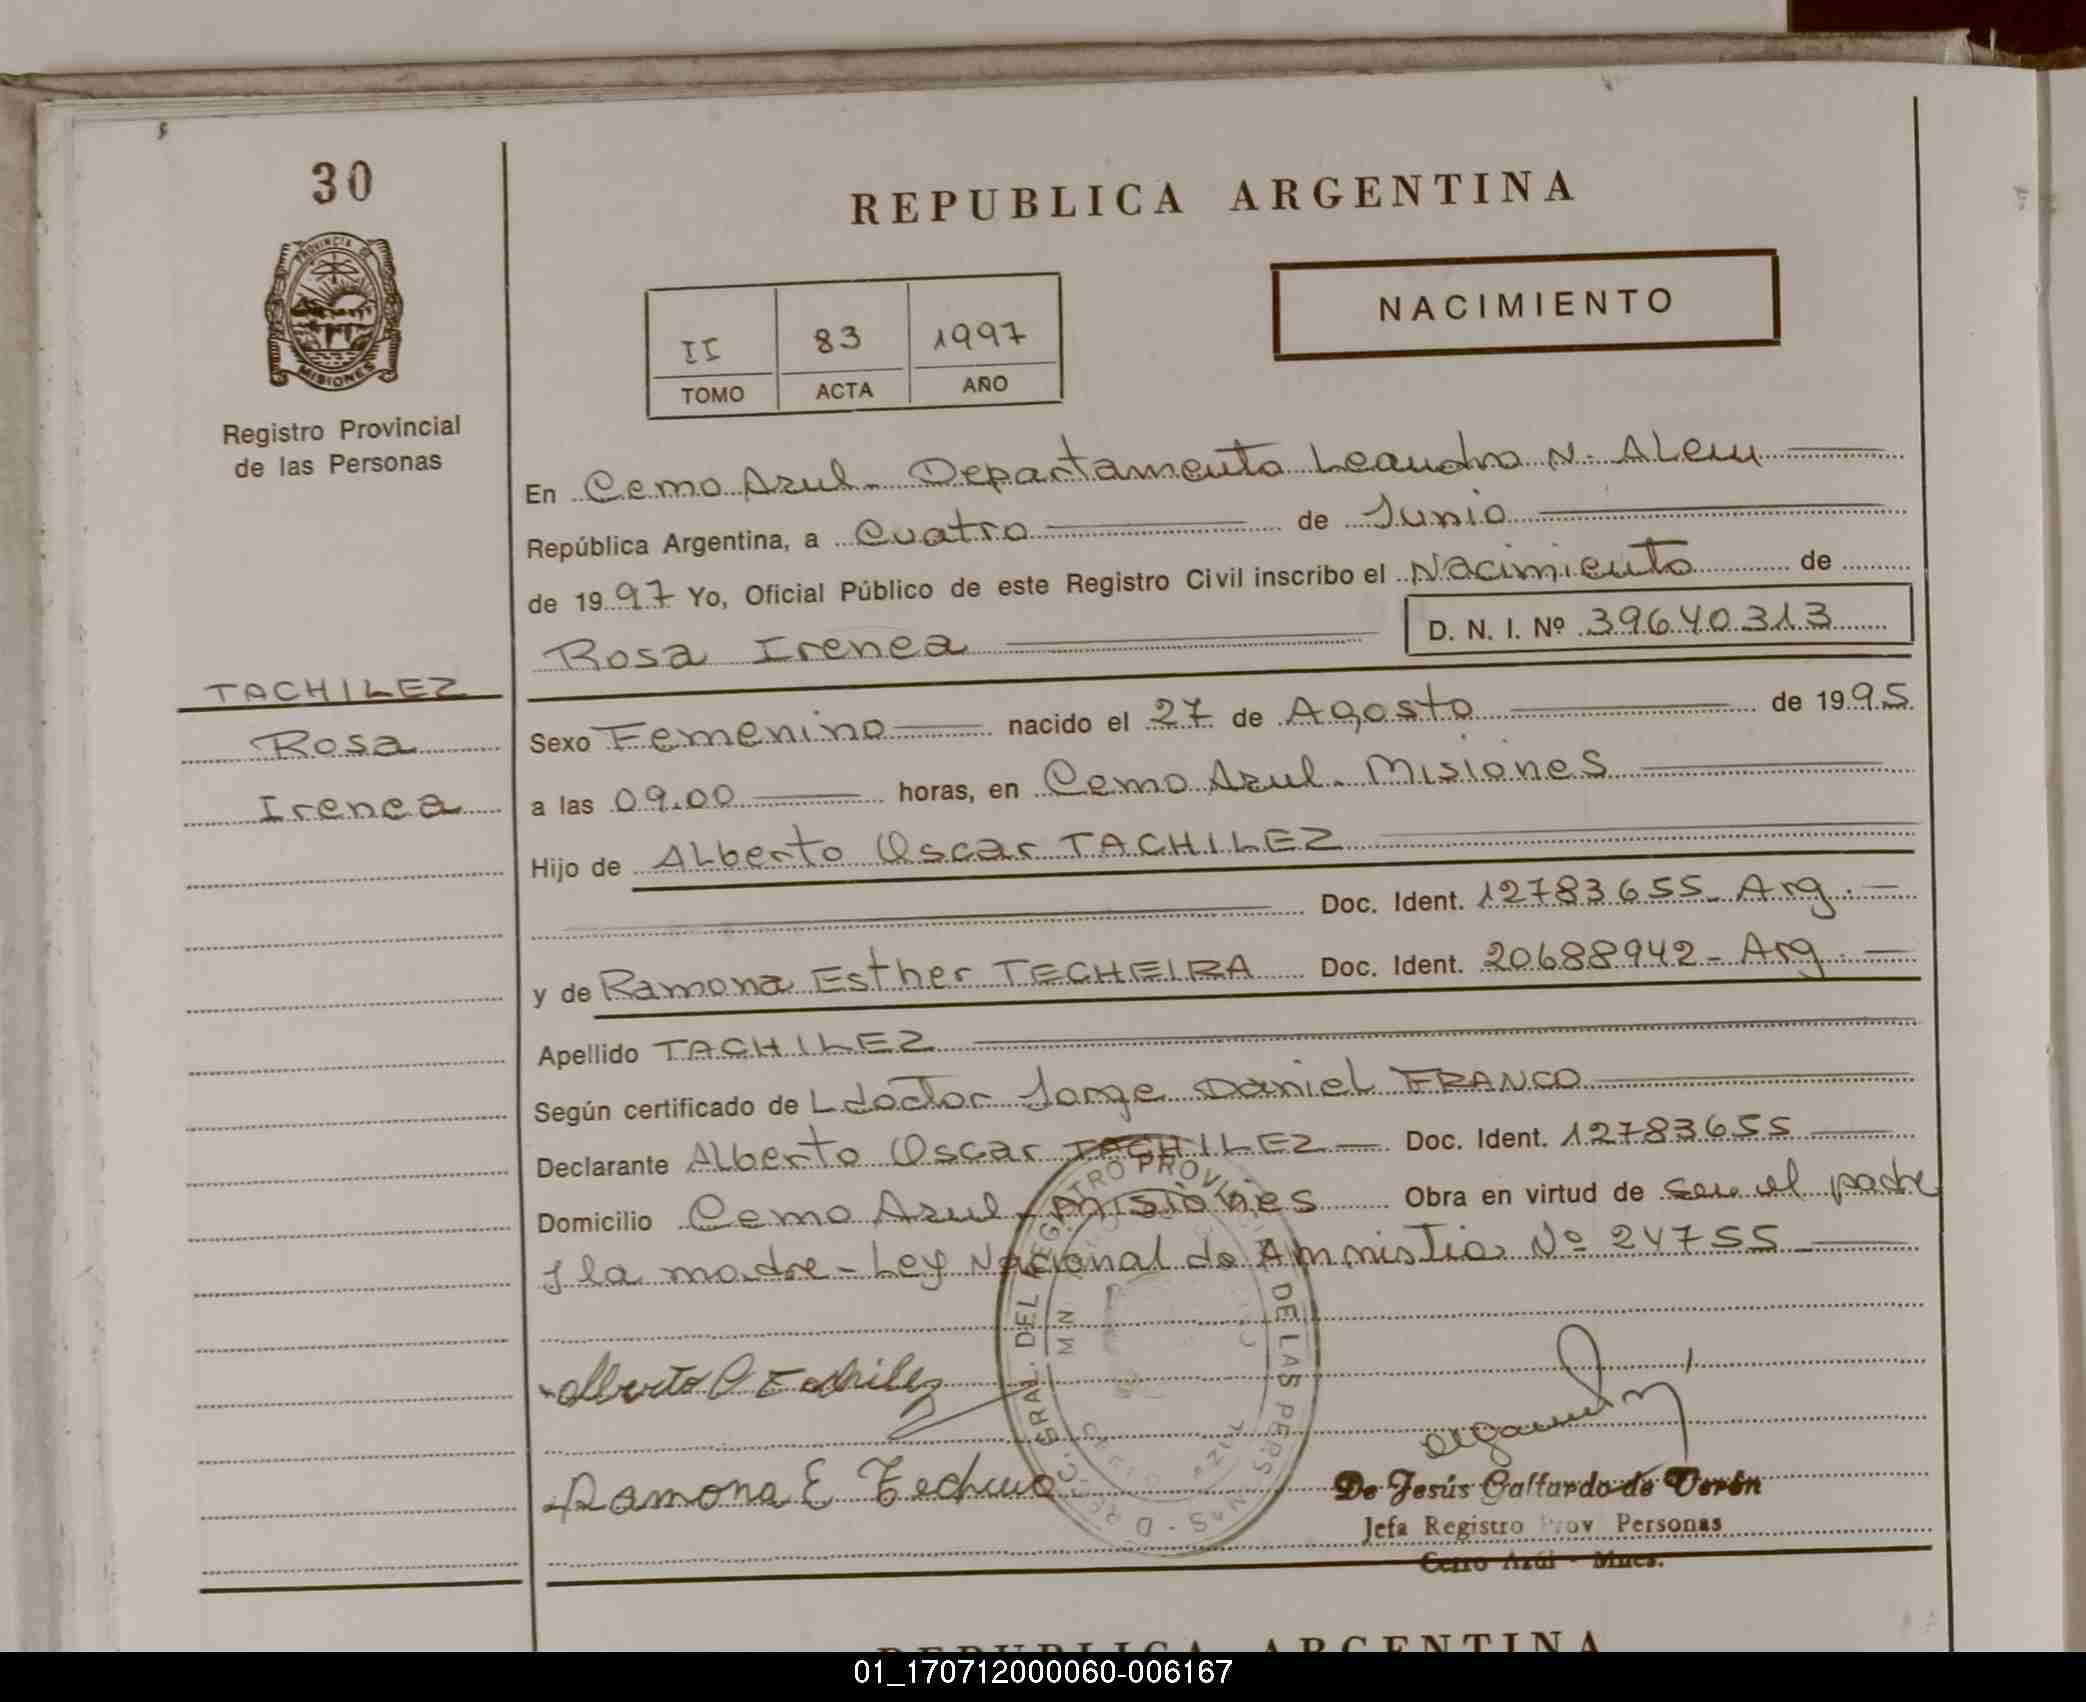 30
REPUBLICA ARGENTINA
PROVINCIA DE
MISIONES
NACIMIENTO
II 83 1997
TOMO ACTA AÑO
Registro Provincial
de las Personas
En Cerro Azul - Departamento Leandro N. Alem
República Argentina, a Cuatro de Junio
de 1997 Yo, Oficial Público de este Registro Civil inscribo el Nacimiento de
Rosa Irenea D. N. I. Nº 39640313
TACHILEZ
Rosa
Irenea
Sexo Femenino nacido el 27 de Agosto de 1995
a las 09.00 horas, en Cerro Azul - Misiones
Hijo de Alberto Oscar TACHILEZ
Doc. Ident. 12783655 - Arg. -
y de Ramona Esther TECHEIRA Doc. Ident. 20688942 - Arg. -
Apellido TACHILEZ
Según certificado del doctor Jorge Daniel FRANCO
Declarante Alberto Oscar TACHILEZ Doc. Ident. 12783655
Domicilio Cerro Azul - Misiones Obra en virtud de ser el padre
y la madre - Ley Nacional de Amnistia Nº 24755
Alberto O Tachilez
Ramona E
De Jesús Gallardo de Verón
Jefa Registro Prov Personas
Cerro Azul - Mnes.
REPUBLICA ARGENTINA
01_170712000060-006167